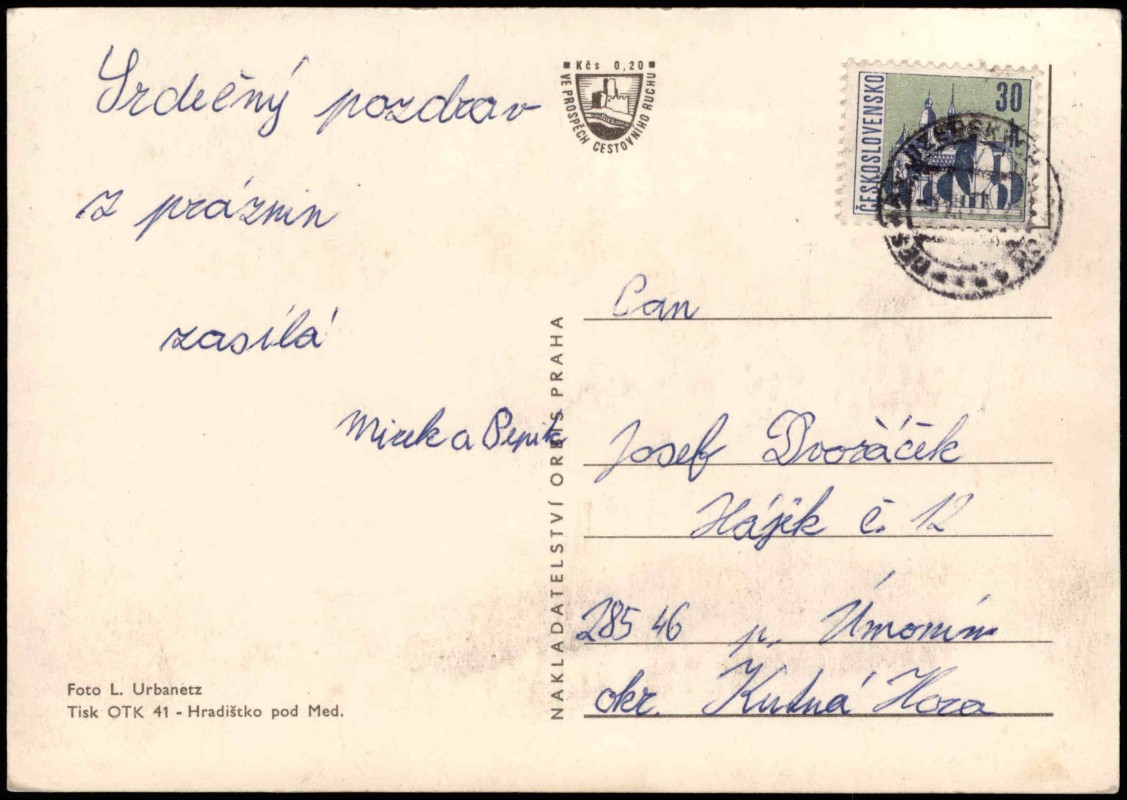 Srdečný pozdrav
z práznin
zasílá
Mirek a Pepík
Foto L. Urbanetz
Tisk OTK 41 - Hradištko pod Med.
NAKLADATELSTVÍ ORBIS PRAHA
Kčs 0,20
VE PROSPĚCH CESTOVNÍHO RUCHU
ČESKOSLOVENSKO
30
Pan
Josef Dvořáček
Hájek č. 12
285 46 p. Úmonín
okr. Kutná Hora